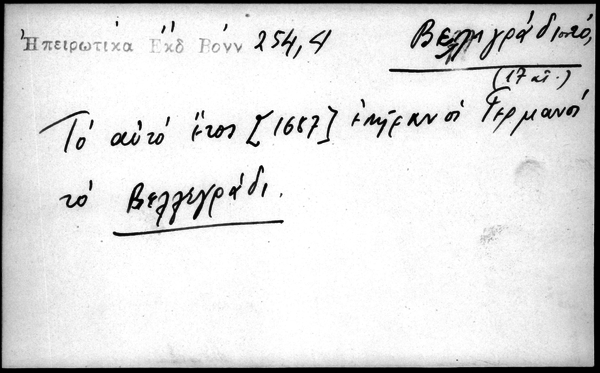 Ἠπειρωτικα Εκδ Βονν 254,4
Βελλιγράδι, τό,
(17 αἰ.)
Τό αὐτό ἔτος [1687] ἐπῆραν οἱ Γερμανοί
τό Βελλεγράδι.